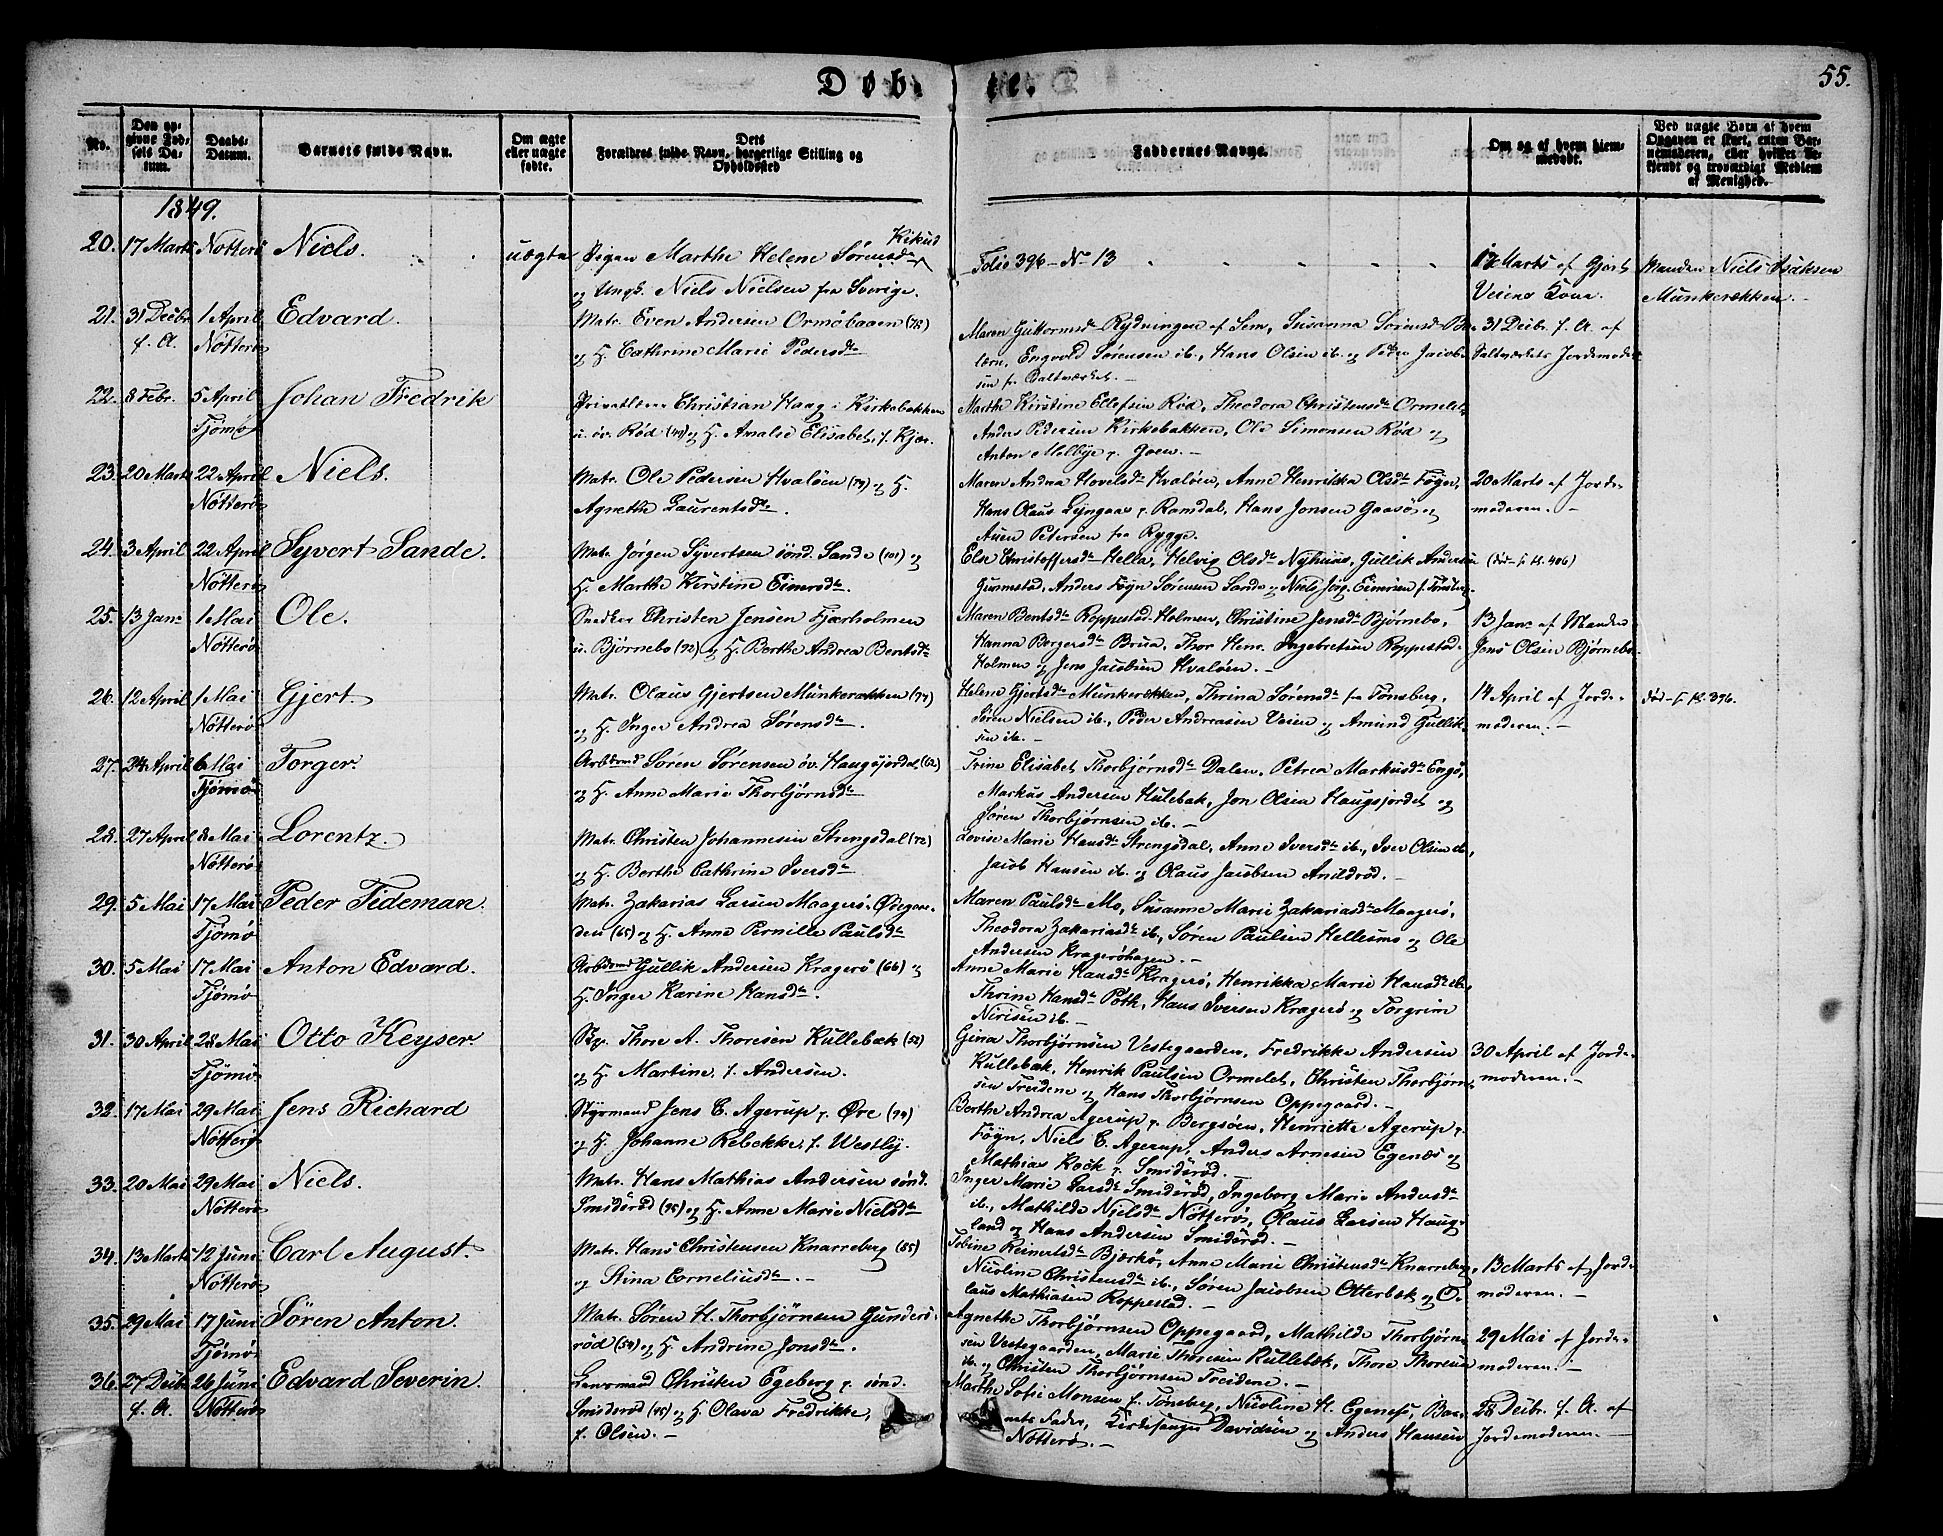 Døbte.
55.
No.
Den opgivne Fødsels Datum.
Daabs-Datum.
Barnets fulde Navn.
Om ægte eller uægte fødte.
Forældres fulde Navn, borgerlige Stilling og Opholdssted
Faddernes Navne.
Om og af hvem hjemmedøbt.
1849.
20. 17 Marts Nötterö Niels. uægte Pigen Marthe Helene Sörensdr
og Ungk. Niels Nielsen fra Sverige.
Folio 396 - No 13
17 Marts af Gjert
Veiens Kone.
Manden Niels Isaksen
Munkerækken.
21. 31 Decbr f. A. 1 April Nötterö Edvard.
Matr. Even Andersen Ormöbaaen (78)
og H. Cathrine Marie Pedersdr
Maren Guttormsdr Rydningen af Sem, Susanna Sörensdr
Engvold Sörensen ib., Hans Olsen ib. og Peder Jacob-
sen fr. Saltværket.
31 Decbr. f. A. af
Saltværkets Jordemoder
22. 8 Febr. 5 April Tjömö Johan Fredrik
Privatlærer Christian Haag i Kirkebakken
u. öv. Röd (49) og H. Amalie Elisabet, f. Kjær.
Marthe Kirstine Ellefsen Röd, Theodora Christensdr Ormelet,
Anders Pedersen Kirkebakken, Ole Simonsen Röd og
Anton Melbye p. Goen.
23. 20 Marts 22 April Nötterö Niels.
Matr. Ole Pedersen Hvalöen (79) og H.
Agnethe Laurentsdr.
Maren Andrea Hovelsdr Hvalöen, Anne Henrikka Olsdr Föyen,
Hans Olaus Lyngaas p. Ramdal, Hans Jonsen Gaasö og
Auen Petersen fra Rygge.
20 Marts af Jorde-
moderen.
24. 3 April 22 April Nötterö Syvert Sande.
Matr. Jörgen Syvertsen sönd. Sande (101) og
H. Marthe Kirstine Einersdr.
Else Christoffersdr Hella, Helvig Olsdr Nyhuus, Gullik Andersen
Gunnestad, Anders Föyn Sörensen Sande og Niels Jörg. Einersen f. Tönsberg.
(död - f. Kl. 406)
25. 13 Janr 1 Mai Nötterö Ole.
Snedker Christen Jensen Fjærholmen
u. Björnebo (92) og H. Berthe Andrea Berntsdr
Maren Berntsdr Roppestad-Holmen, Christine Jensdr Björnebo,
Hanna Borgersdr Brua, Thor Henr. Ingebretsen Roppestad-
Holmen og Jens Jacobsen Hvalöen.
13 Janr af Manden
Jens Olsen Björnebo.
26. 12 April 1 Mai Nötterö Gjert.
Matr. Olaus Gjertsen Munkerækken (74)
og H. Inger Andrea Sörensdr
Helene Gjertsdr Munkerækken, Thrina Sörensdr fra Tönsberg,
Sören Nielsen ib., Peder Andreasen Veien og Amund Gullik-
sen ib.
14 April af Jorde-
moderen.
död - f. Kl. 396.
27. 24 April 6 Mai Tjömö Torger.
Arbmd Sören Sörensen öv. Haugsjordet (62)
og H. Anne Marie Thorbjörnsdr
Trine Elisabet Thorbjörnsdr Dalen, Petrea Markusdr Engö,
Markus Andersen Hulebak, Jon Olsen Haugsjordet og
Sören Thorbjörnsen ib.
28. 27 April 8 Mai Nötterö Lorentz.
Matr. Christen Johannesen Strengsdal (72)
og H. Berthe Cathrine Iversdr
Lovise Marie Hansdr Strengsdal, Anne Iversdr ib., Iver Olsen ib.,
Jacob Hansen ib. og Olaus Jacobsen Arildröd.
29. 5 Mai 17 Mai Tjömö Peder Tideman.
Matr. Zakarias Larsen Maagerö-Östegaar-
den (65) og H. Anne Pernille Paulsdr
Maren Paulsdr Mo, Susanne Marie Zakariasdr Maagerö,
Theodora Zakariasdr ib., Sören Paulsen Hellesmo og Ole
Andersen Krageröhagen.
30. 5 Mai 17 Mai Tjömö Anton Edvard.
Arbmd Gullik Andersen Kragerö (66) og
H. Inger Karine Hansdr.
Anne Marie Hansdr Kragerö, Henrikka Marie Hansdr ib.,
Thrine Hansdr Poth, Hans Iversen Kragerö og Torgrim
Nirisen ib.
31. 30 April 28 Mai Tjömö Otto Keyser.
Skp. Thore A. Thoresen Kullebæk (52)
og H. Martine, f. Andersen.
Gina Thorbjörnsen Vestegaarden, Fredrikke Andersen
Kullebæk, Henrik Paulsen Ormelet, Christen Thorbjörn-
sen Treidene og Hans Thorbjörnsen Oppegaard.
30 April af Jorde-
moderen.
32. 17 Mai 29 Mai Nötterö Jens Richard
Styrmand Jens C. Agerup p. Öre (94)
og H. Johanne Rebekke, f. Westby.
Berthe Andrea Agerup p. Bergsöen, Henriette Agerup p.
Föyn, Niels C. Agerup, Anders Arnesen Egenæs og
Mathias Kock p. Smideröd.
33. 20 Mai 29 Mai Nötterö Niels.
Matr. Hans Mathias Andersen sönd.
Smideröd (95) og H. Anne Marie Nielsdr
Inger Marie Larsdr Smideröd, Ingeborg Marie Andersdr
ib., Mathilde Nielsdr Nötterö, Olaus Larsen Haug-
land og Hans Andersen Smideröd.
34. 13 Marts 12 Juni Nötterö Carl August.
Matr. Hans Christensen Knarreberg (85)
og Stina Corneliusdr.
Tobine Reinertsdr Bjerkö, Anne Marie Christensdr Knarreberg,
Nicoline Christensdr ib., Sören Jacobsen Otterbæk og O-
laus Mathiasen Roppestad.
13 Marts af Jorde-
moderen.
35. 29 Mai 17 Juni Tjömö Sören Anton.
Matr. Sören H. Thorbjörnsen Gunders-
röd (54) og H. Andrine Jonsdr.
Agnethe Thorbjörnsen Oppegaard, Mathilde Thorbjörn-
sen Vestegaarden, Marie Thoresen Kullebæk, Thore Thoresen
ib. og Christen Thorbjörnsen Treidene.
29 Mai af Jorde-
moderen.
36. 27 Decbr f. A. 26 Juni Nötterö Edvard Severin.
Lensmand Christen Egeberg p. sönd.
Smideröd (95) og H. Olava Fredrikke,
f. Olsen.
Marthe Sofie Monsen f. Tönsberg, Nicoline H. Egenæs, Bar-
nets Fader, Kirkesanger Davidsen og Anders Hansen
Nötterö.
28 Decbr. f. A. af
Jordemoderen.